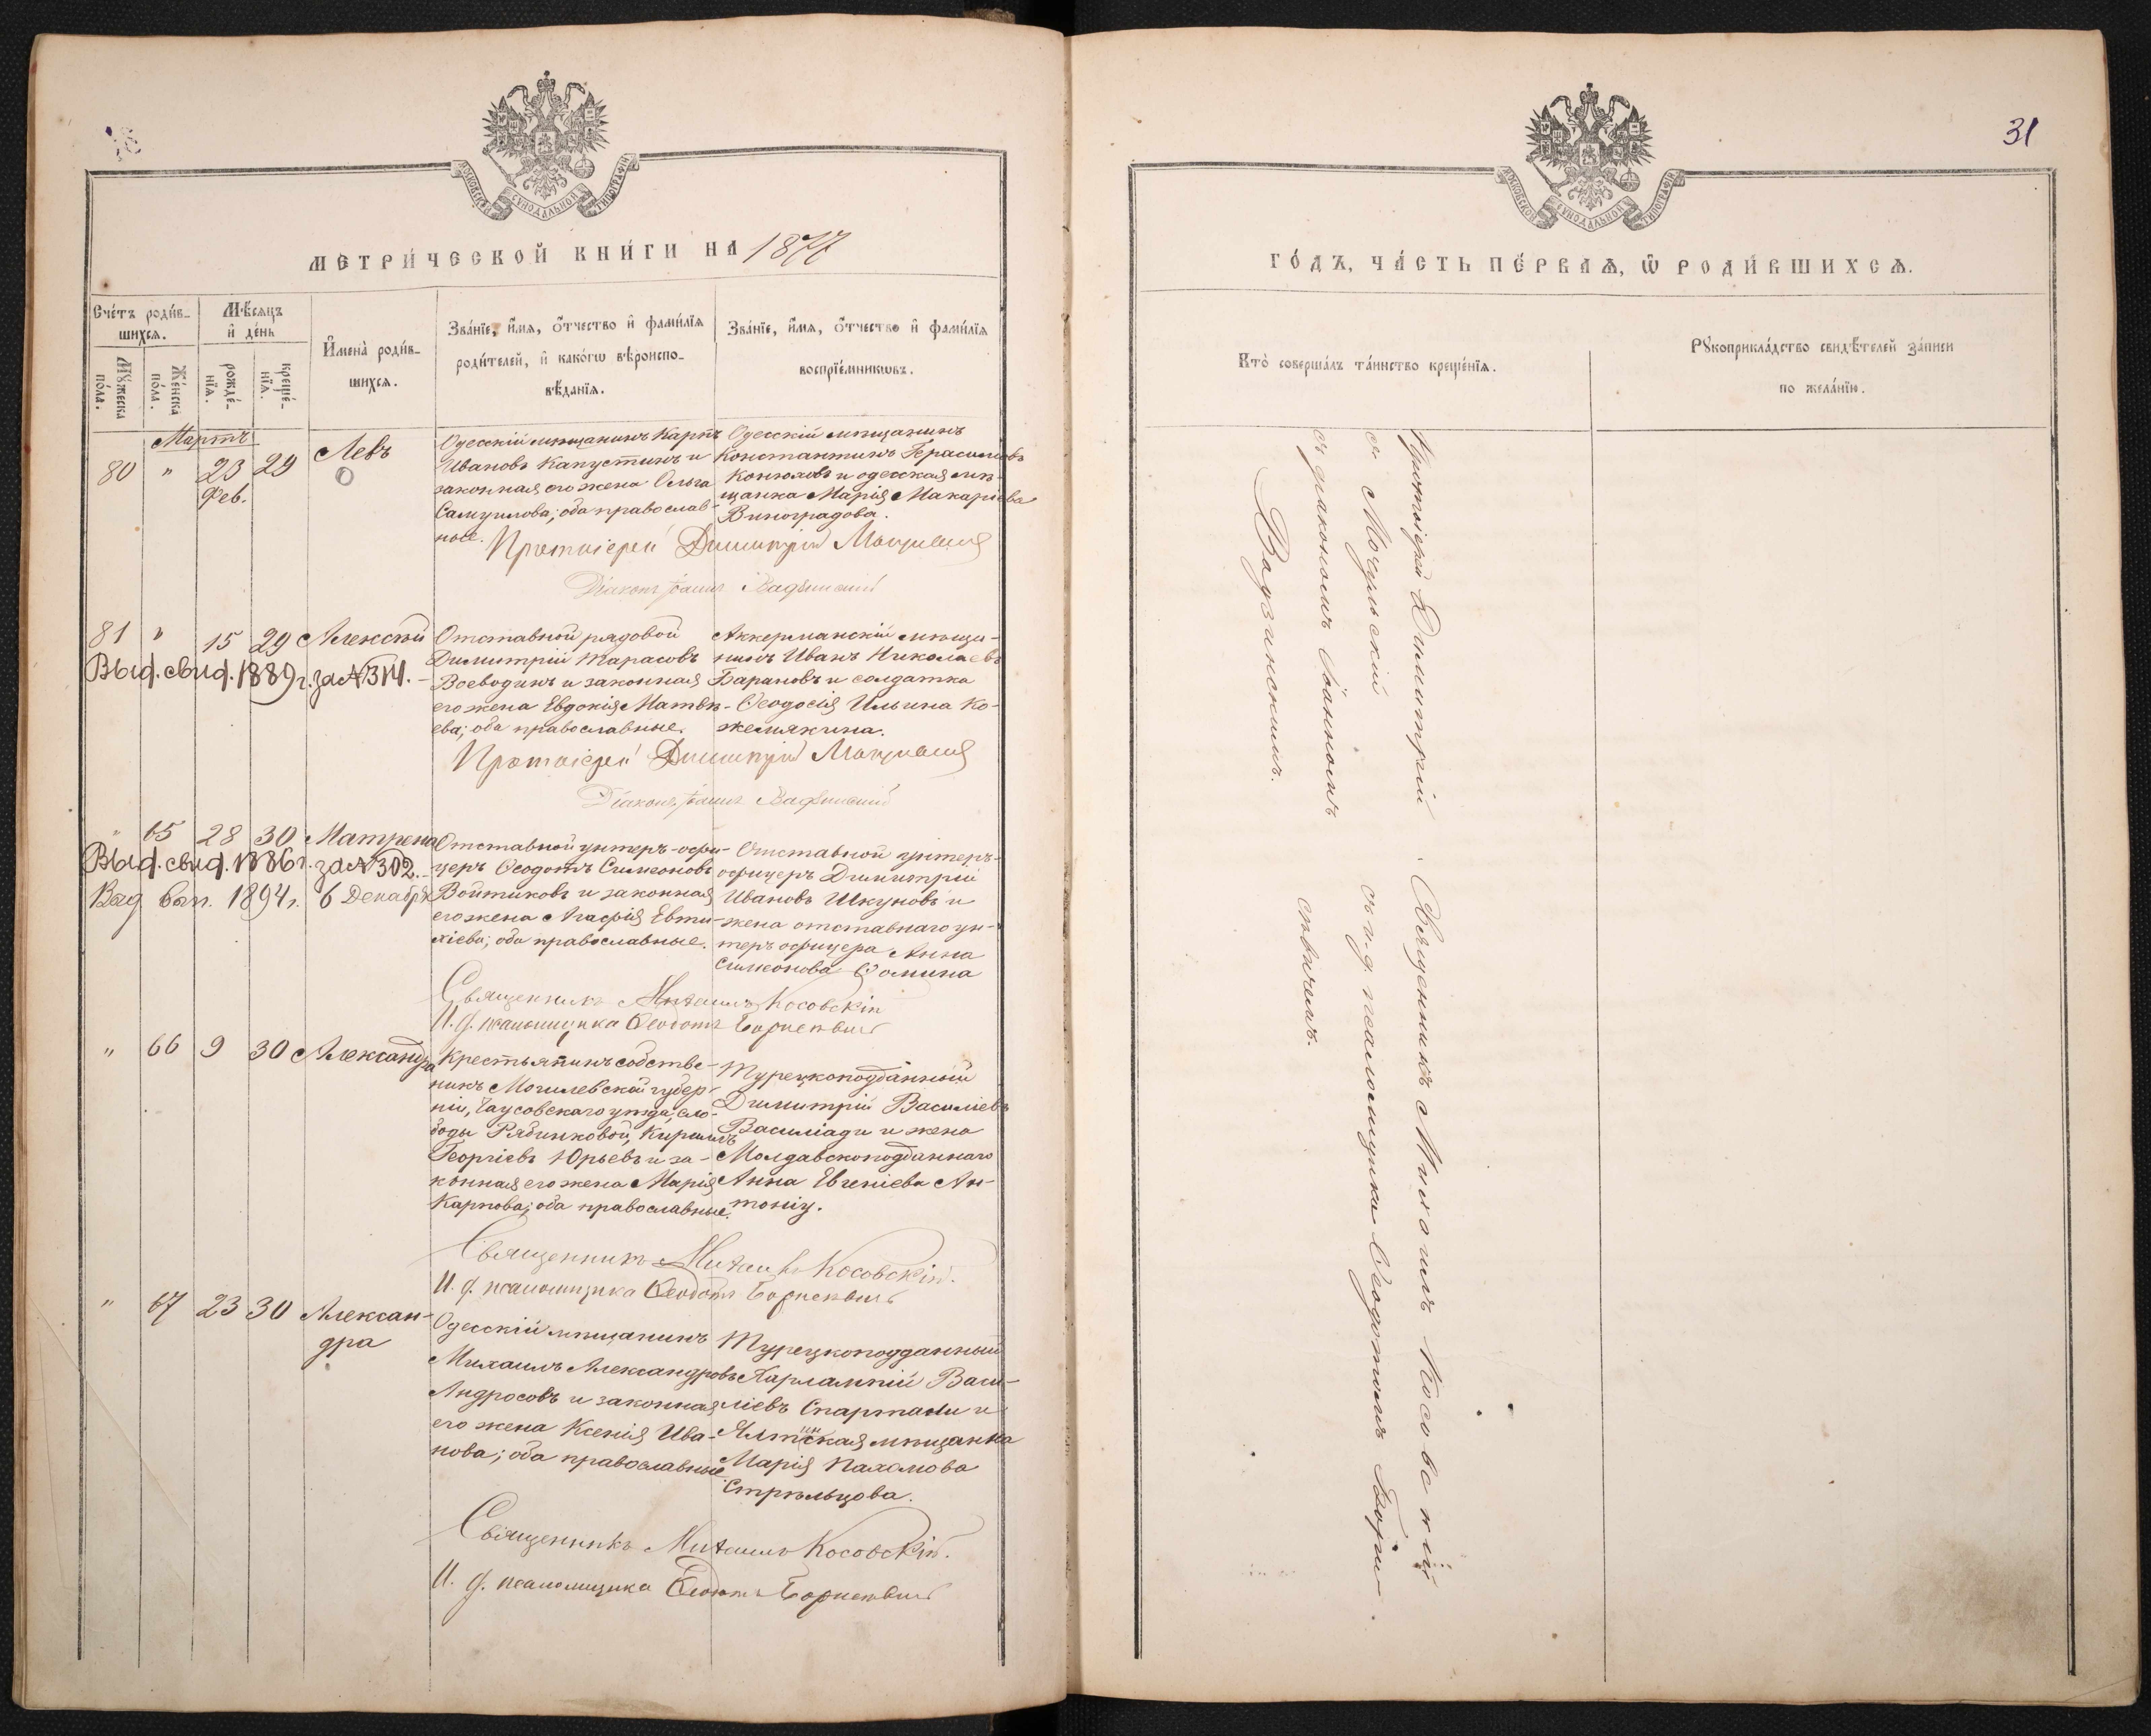 МОСКОВСКОЙ СУНОДАЛЬНОЙ ТИПОГРАФІИ
МЕТРИ́ЧЕСКОЙ КНИ́ГИ НА 1877
Сче́тъ роди́в-
шихсѧ.
Мѣ́сѧцъ
и҆ де́нь
Мꙋ́жеска
по́ла.
Же́нска
по́ла.
рожде́-
нїѧ.
креще́-
нїѧ.
И҆мена̀ роди́в-
шихсѧ.
Зва́нїе, и҆́мѧ, ѻ҆́тчество и҆ фами́лїѧ
роди́телей, и҆ како́гѡ вѣ̀роиспо-
вѣ́данїѧ.
Зва́нїе, и҆́мѧ, ѻ҆́тчество и҆ фами́лїѧ
воспрїе́мникѡвъ.
Мартъ
80 " 23 29 Левъ
Фев.
Одесскій мѣщанинъ Карпъ
Ивановъ Капустинъ и
законная его жена Ольга
Самуилова; оба православ-
ные.
Одесскій мѣщанинъ
Константинъ Герасимовъ
Конюховъ и одесская мѣ-
щанка Марія Макаріева
Виноградова.
Протоіерей Димитрій
Діаконъ Іоаннъ Вадзинскій
81 " 15 29 Алексѣй
Выд. свид. 1889 г. за № 314.
Отставной рядовой
Димитрій Тарасовъ
Воеводинъ и законная
его жена Евдокія Матвѣ-
ева; оба православные.
Аккерманскій мѣща-
нинъ Иванъ Николаевъ
Барановъ и солдатка
Ѳеодосія Ильина Ко-
жемякина.
Протоіерей Димитрій
Діаконъ Іоаннъ Вадзинскій
" 65 28 30 Матрена
Выд. свид. 1886 г. за № 302.
1894 г. 6 Декабря
Отставной унтеръ-офи-
церъ Ѳеодотъ Симеоновъ
Войтиковъ и законная
его жена Агафія Евти-
хіева; оба православные.
Отставной унтеръ-
офицеръ Димитрій
Ивановъ Шкуновъ и
жена отставнаго ун-
теръ офицера Анна
Симеонова Ѳомина
Священникъ Михаилъ Косовскій
И. д. псаломщика Ѳеодотъ
" 66 9 30 Александра
Крестьянинъ собстве-
никъ Могилевской губер-
ніи, Чаусовскаго уѣзда, сло-
боды Рябинковой, Кириллъ
Георгіевъ Юрьевъ и за-
конная его жена Марія
Карпова; оба православные.
Турецкоподданный
Димитрій Василіевъ
Василіади и жена
Молдавскоподданнаго
Анна Евгеніева Ан-
тоніу.
Священникъ Михаилъ Косовскій.
И. д. псаломщика Ѳеодотъ
" 67 23 30 Алексан-
дра
Одесскій мѣщанинъ
Михаилъ Александровъ
Андросовъ и законная
его жена Ксенія Ива-
нова; оба православные
Турецкоподданный
Харлампій Васи-
ліевъ Спартали и
Ялтинская мѣщанка
Марія Пахомова
Стрѣльцова.
Священникъ Михаилъ Косовскій.
И. д. псаломщика Ѳеодотъ
31
МОСКОВСКОЙ СУНОДАЛЬНОЙ ТИПОГРАФІИ
ГО́ДЪ, ЧА́СТЬ ПЕ́РВАѦ, Ѡ҆ РОДИ́ВШИХСѦ.
Кто̀ соверша́лъ та́инство креще́нїѧ.
Рꙋкоприкла́дство свидѣ́телей за́писи
по жела́нїю.
Протоіерей Димитрій
съ діакономъ Іоанномъ
Вадзинскимъ.
Священникъ Михаилъ Косовскій
съ и. д. псаломщика Ѳеодотомъ